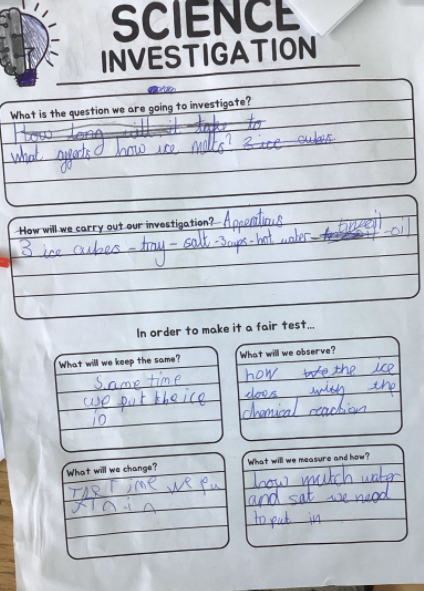 SCIENCE
INVESTIGATION
What is the question we are going to investigate?
How long will it take to
what affects how ice melts? 3 ice cubes
How will we carry out our investigation? - Apperatius
3 ice cubes - tray - salt - 3 cups - hot water - tinfoil - oil
In order to make it a fair test...
What will we keep the same?
Same time
we put the ice
in
What will we observe?
how the ice
does with the
chemical reaction
What will we change?
the time we pu
t in
What will we measure and how?
how mutch water
and salt we need
to put in